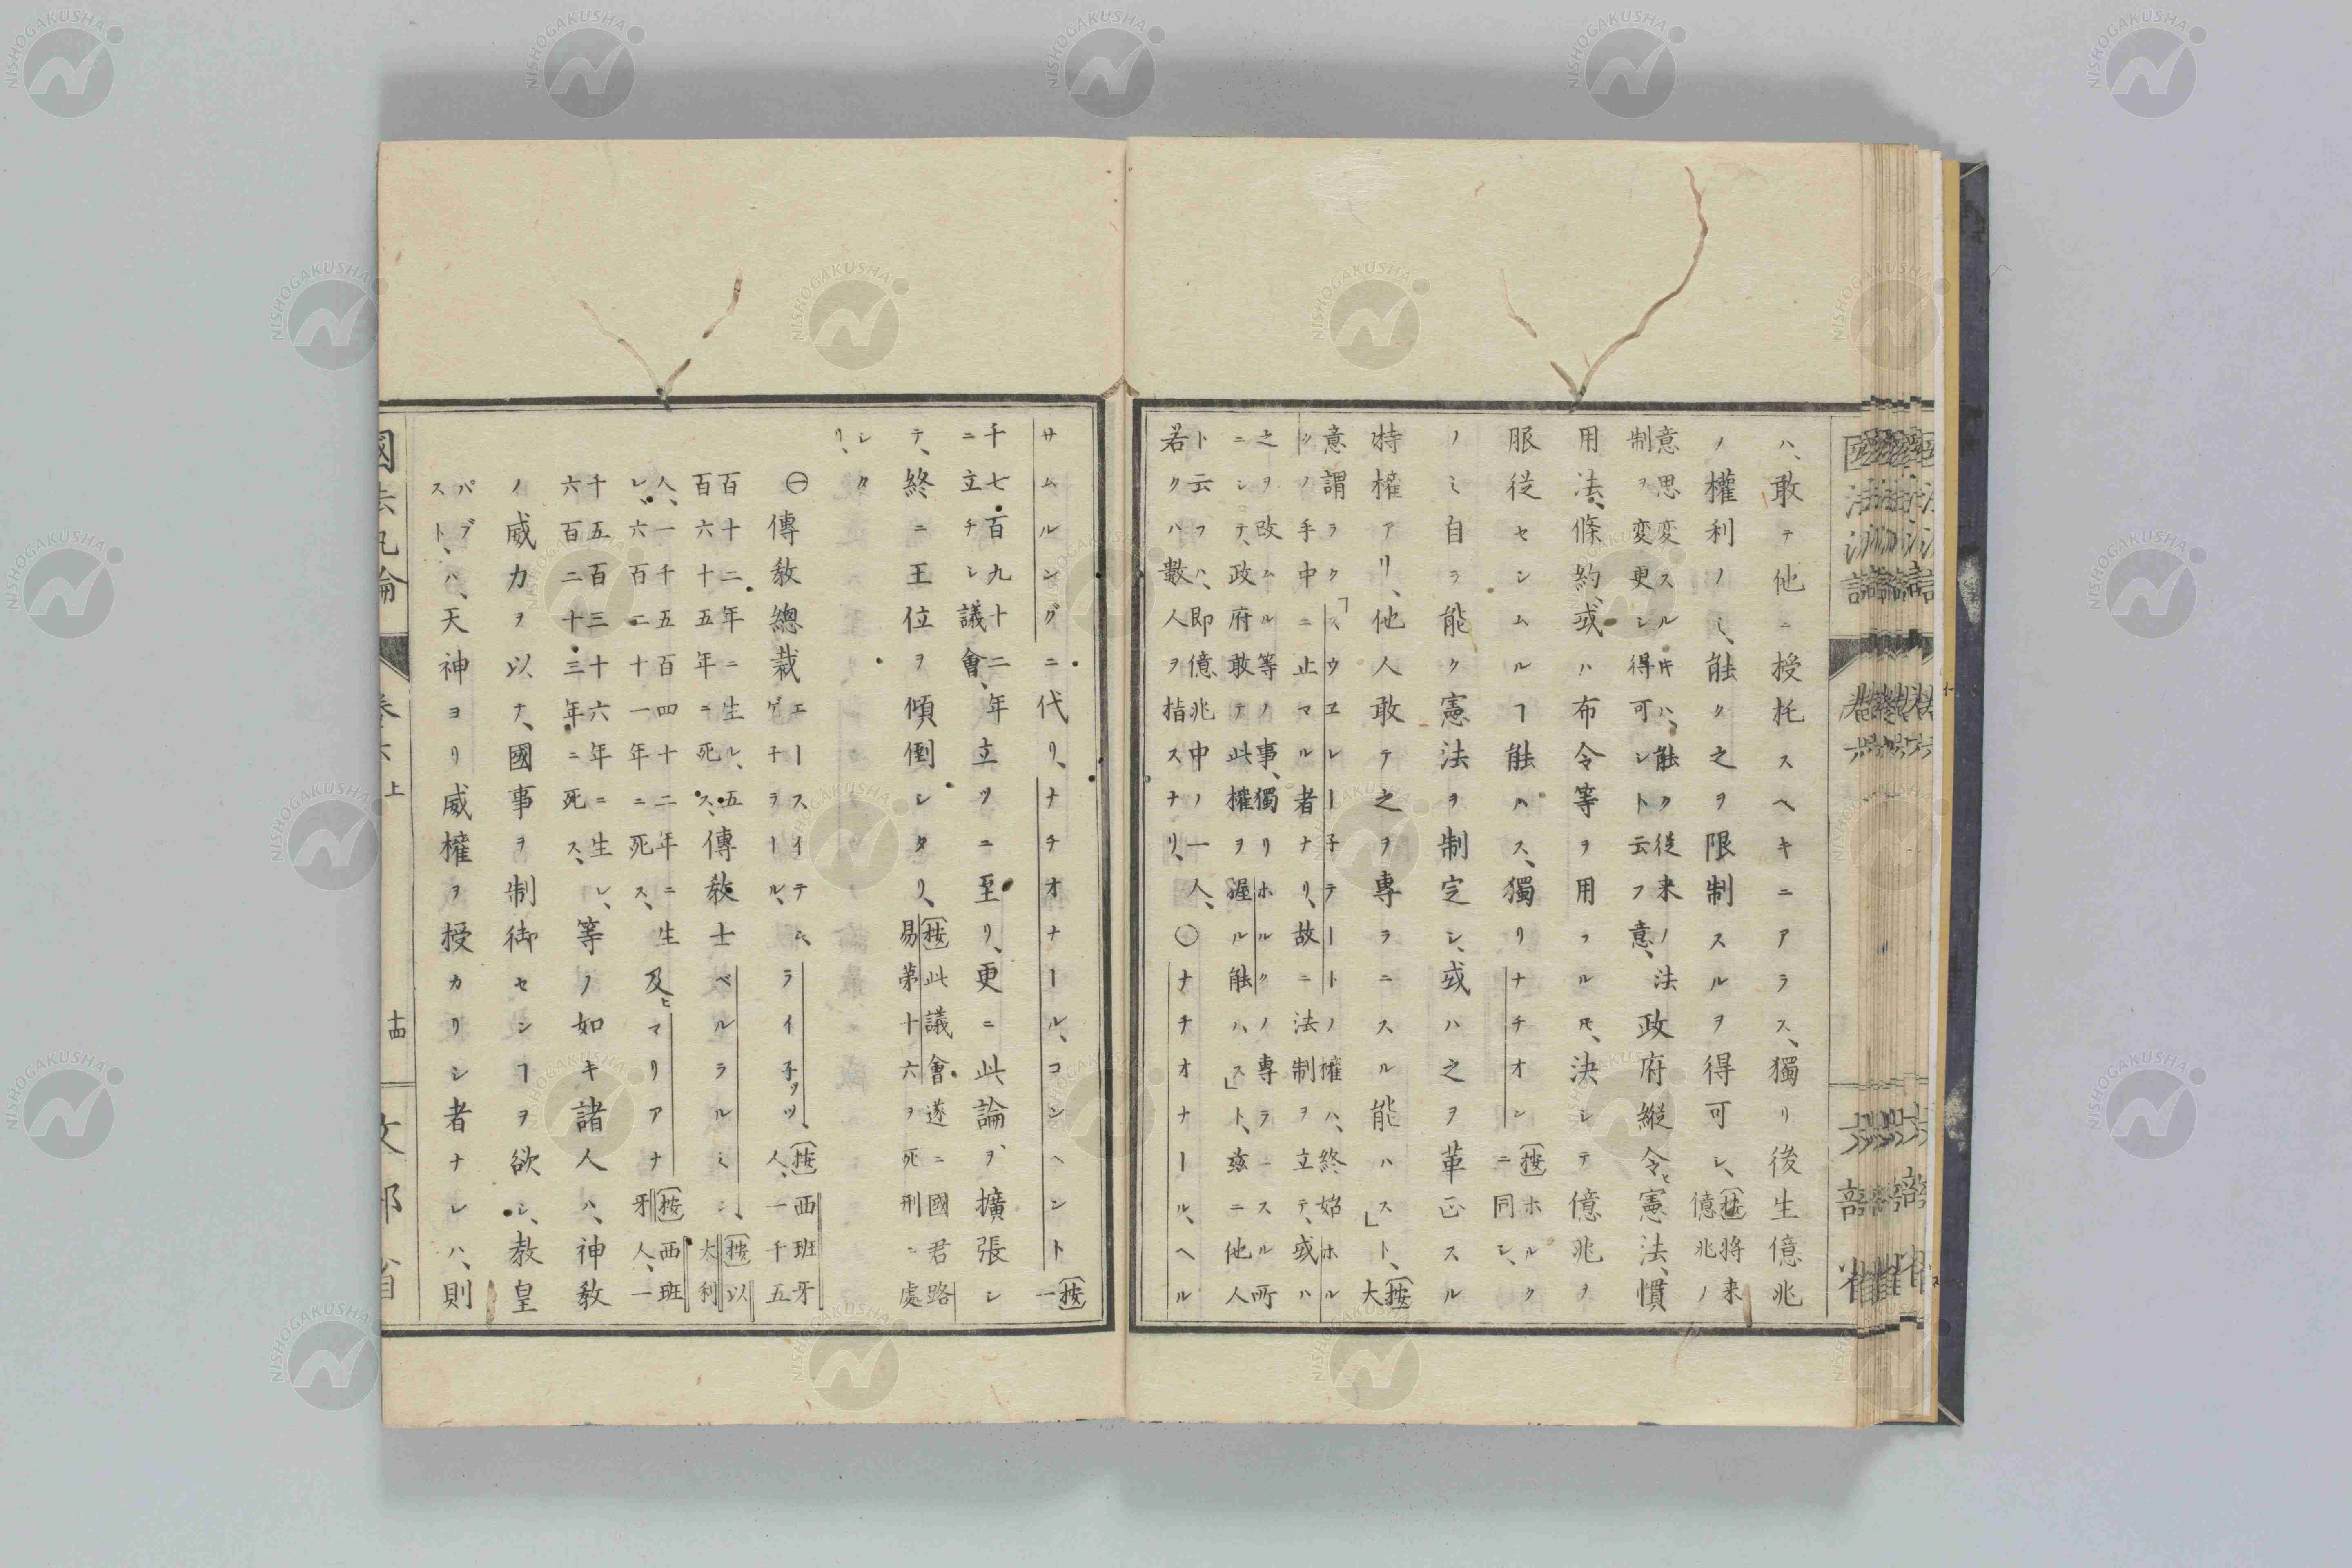 ハ、敢テ他ニ授托スヘキニアラス、獨リ後生億兆
ノ權利ノミ、能ク之ヲ限制スルヲ得可シ、(按)將来億兆ノ
意思変スル𪜈ハ、能ク従来ノ法制ヲ変更シ得可シト云フ意、政府縱令ヒ憲法、慣
用法、條約、或ハ布令等ヲ用フル𪜈、決シテ億兆ヲ
服従セシムルヿ能ハス、獨リナチオン(按)ホルクニ同シ、
ノミ自ラ能ク憲法ヲ制定シ、或ハ之ヲ革正スル
特權アリ、他人敢テ之ヲ專ラニスル能ハス」ト、(按)大
意謂ラク「スウヱレー子テートノ權ハ、終始ホルクノ手中ニ止マル者ナリ、故ニ法制ヲ立テ、或ハ
之ヲ改ムル等ノ事、獨リホルクノ専ラニスル所ニシテ、政府敢テ此權ヲ握ル能ハス」ト、玆ニ他人
ト云フハ、即億兆中ノ一人、若クハ數人ヲ指スナリ、○ナチオナール、ヘル
サムルングニ代リ、ナチオナール、コンヘント(按)一
千七百九十二年ニ立チシ議會、立ツニ至リ、更ニ此論ヲ擴張シ
テ、終ニ王位ヲ傾倒シタリ、(按)此議會遂ニ國君路易第十六ヲ死刑ニ處
シタリ、
㊀傳教總裁エースイテン、ゲ子ラール、ライ子ッツ、(按)西班牙人、一千五
百十二年ニ生ル、五百六十五年ニ死ス、傳教士ベルラルミン、(按)以大利
人、一千五百四十二年ニ生レ、六百二十一年ニ死ス、及ヒマリアナ(按)西班牙人、一
千五百三十六年ニ生レ、六百二十三年ニ死ス、等ノ如キ諸人ハ、神教
ノ威力ヲ以テ、國事ヲ制御センヿヲ欲シ、教皇
パプスト、ハ、天神ヨリ威權ヲ授カリシ者ナレハ、則
國法汎論 巻六上 十四 文部省
NISHOGAKUSHA